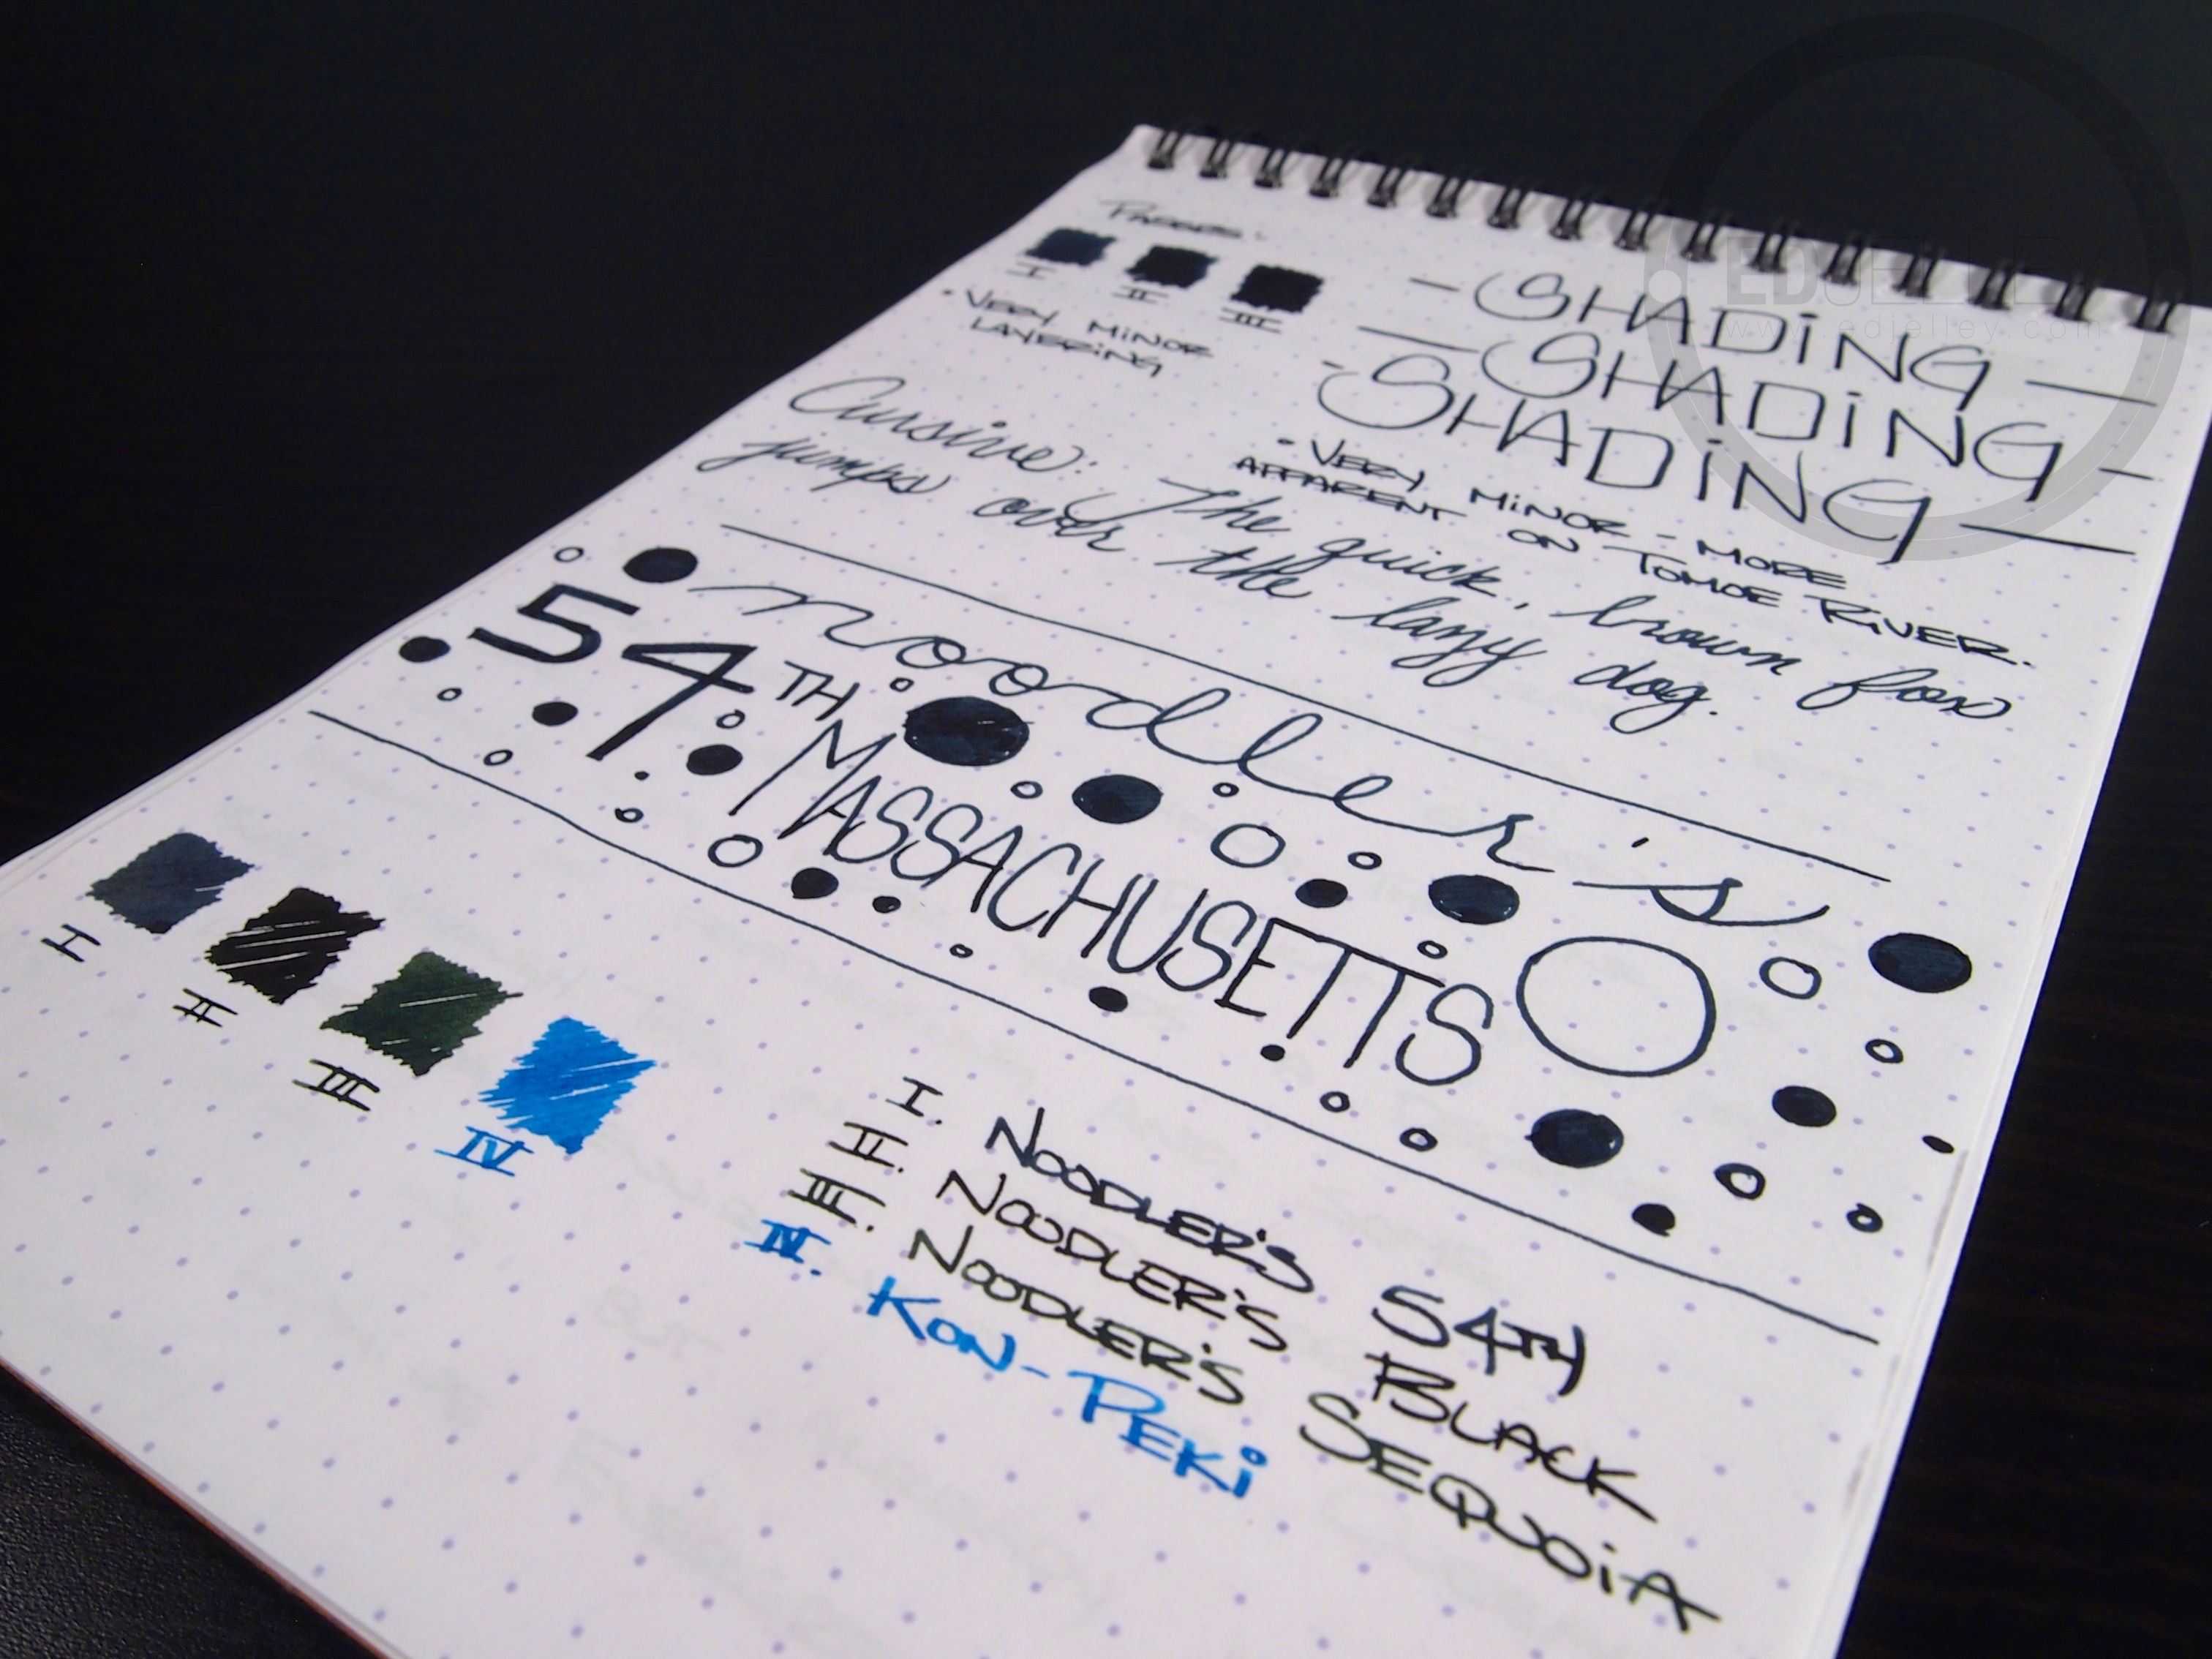 PASSES:
I
II
III
• VERY MINOR
LAYERING
- SHADING -
- SHADING -
- SHADING -
• VERY MINOR - MORE
APPARENT ON TOMOE RIVER.
Cursive: The quick, brown fox
jumps over the lazy dog.
noodler's
54TH
MASSACHUSETTS
I
II
III
IV
I. NOODLER'S 54TH
II. NOODLER'S BLACK
III. NOODLER'S SEQUOIA
IV. KON-PEKI
EDJELLEY
www.edjelley.com